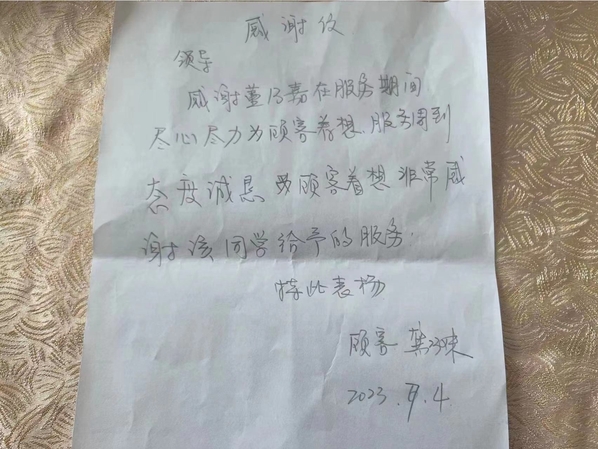 感谢仪
领导
感谢董乃嘉在服务期间
尽心尽力为顾客着想.服务周到
态度诚恳 为顾客着想 非常感
谢该同学给予的服务.
特此表杨
顾客 龚
2023.9.4